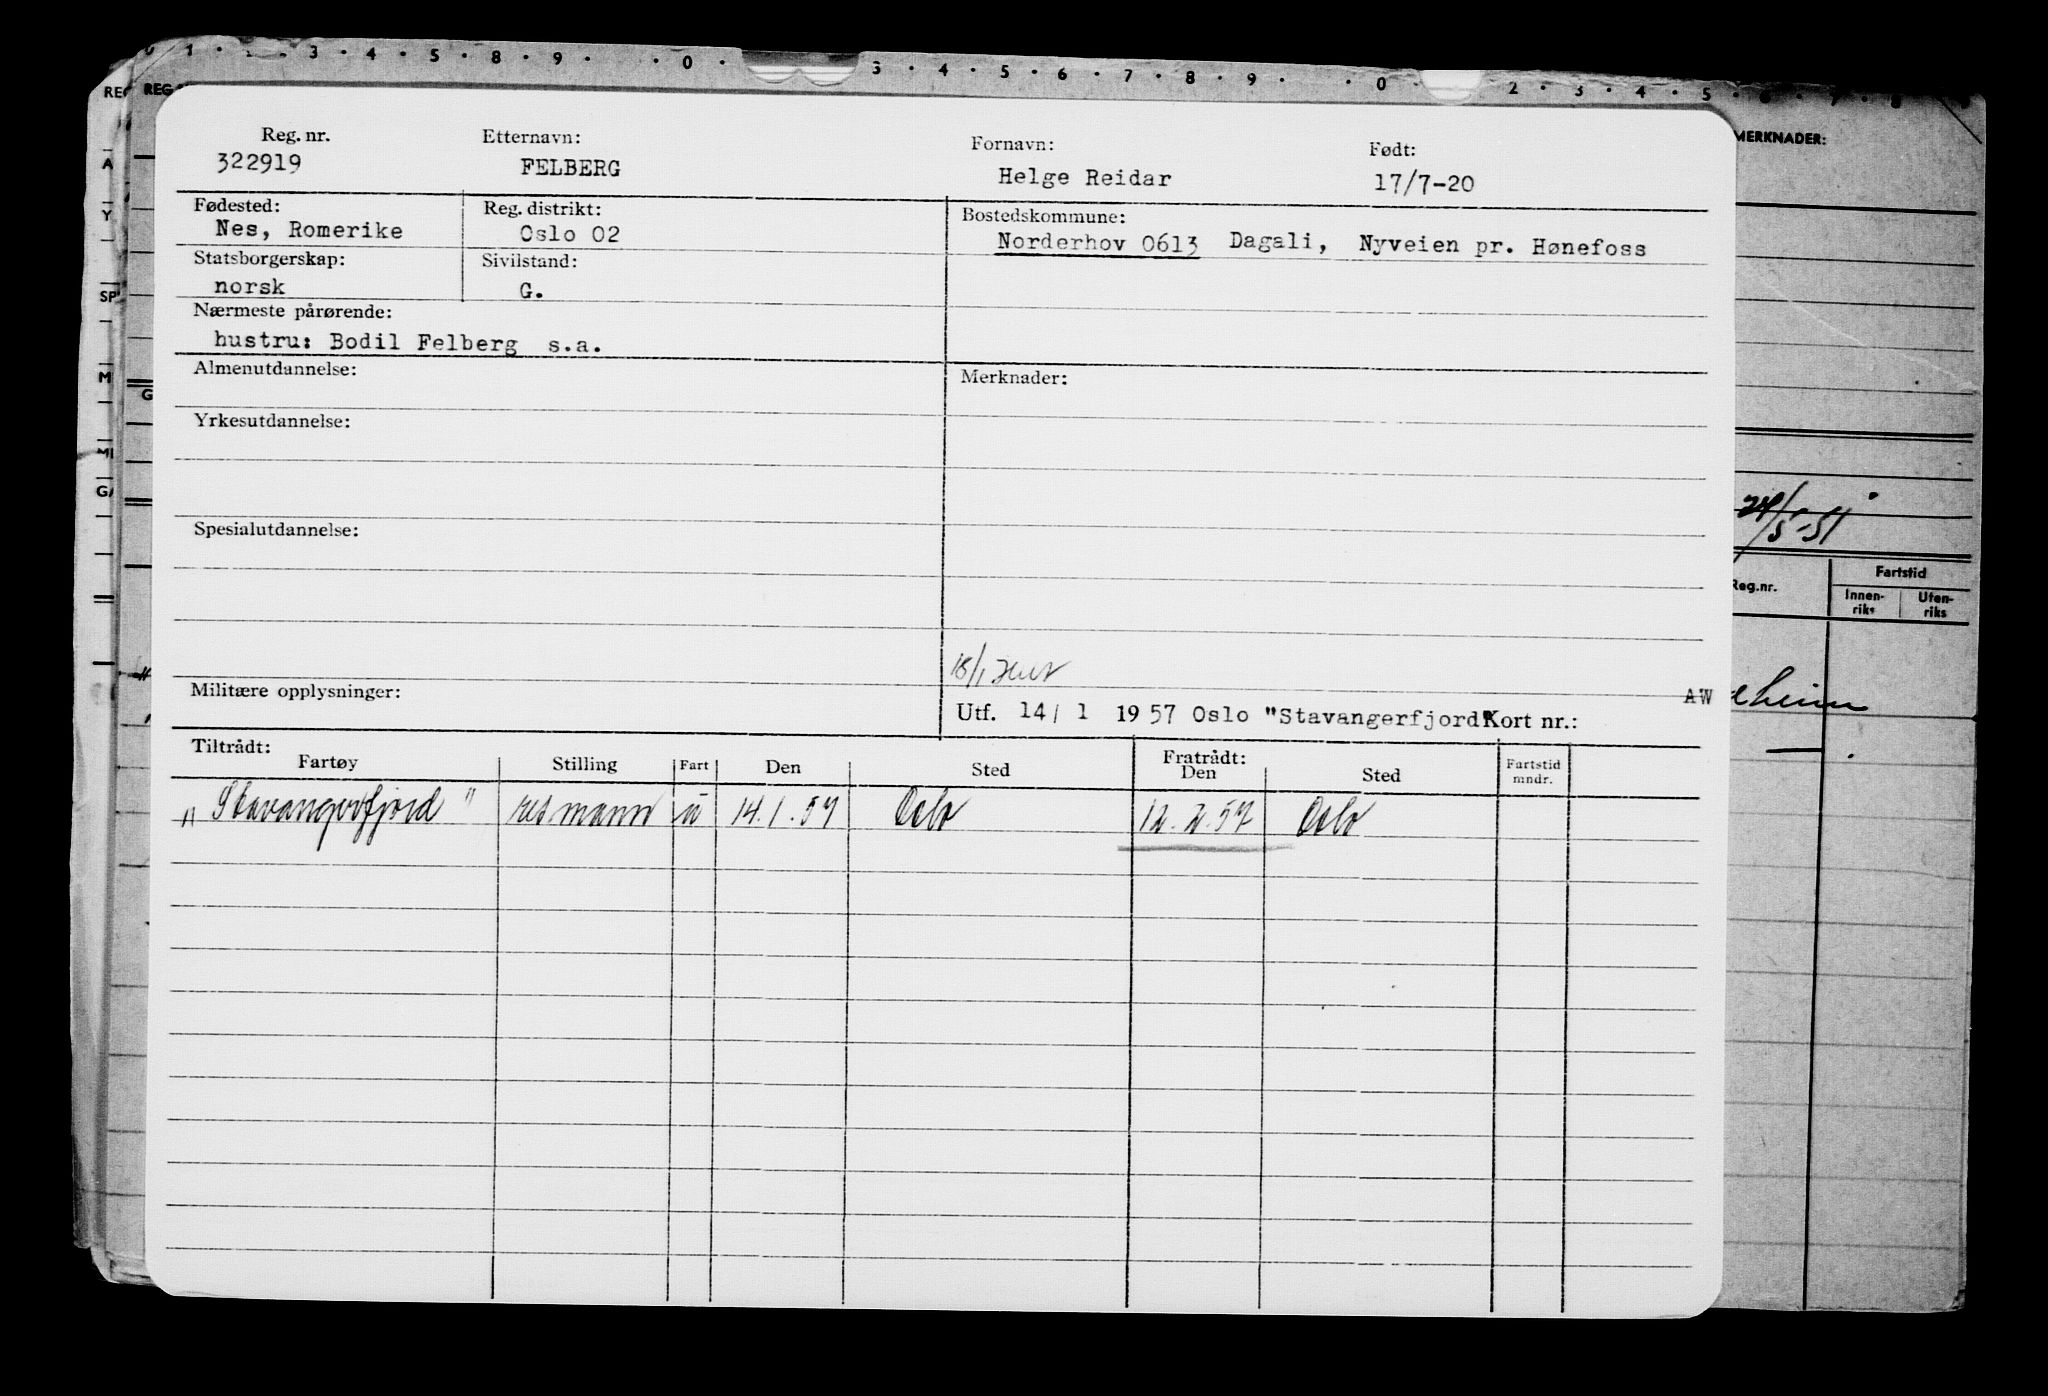 0 1 · 3 · 4 · 5 · 8 · 9 · · 0 · 3 · 4 · 5 · 6 · 7 · 8 · 9 · · 0 · 2 · 3 · 4 · 5 · 6 · 7 · 8 9
REG REG MERKNADER:
Reg. nr. Etternavn: Fornavn: Født:
322919 FELBERG Helge Reidar 17/7-20
Fødested: Reg. distrikt: Bostedskommune:
Nes, Romerike Oslo 02 Norderhov 0613 Dagali, Nyveien pr. Hønefoss
Statsborgerskap: Sivilstand:
norsk G.
Nærmeste pårørende:
hustru: Bodil Felberg s.a.
Almenutdannelse: Merknader:
Yrkesutdannelse:
Spesialutdannelse:
Militære opplysninger: AW
Utf. 14/ 1 1957 Oslo "Stavangerfjord" Kort nr.:
Tiltrådt: Fratrådt:
Fartøy Stilling Fart Den Sted Den Sted Fartstid mndr.
"Stavangerfjord" resmann u 14.1.57 Oslo 12.2.57 Oslo
A
Y
SP
M
G
MI
GA
24/5-51
Reg.nr. Fartstid
Innen-riks Uten-riks